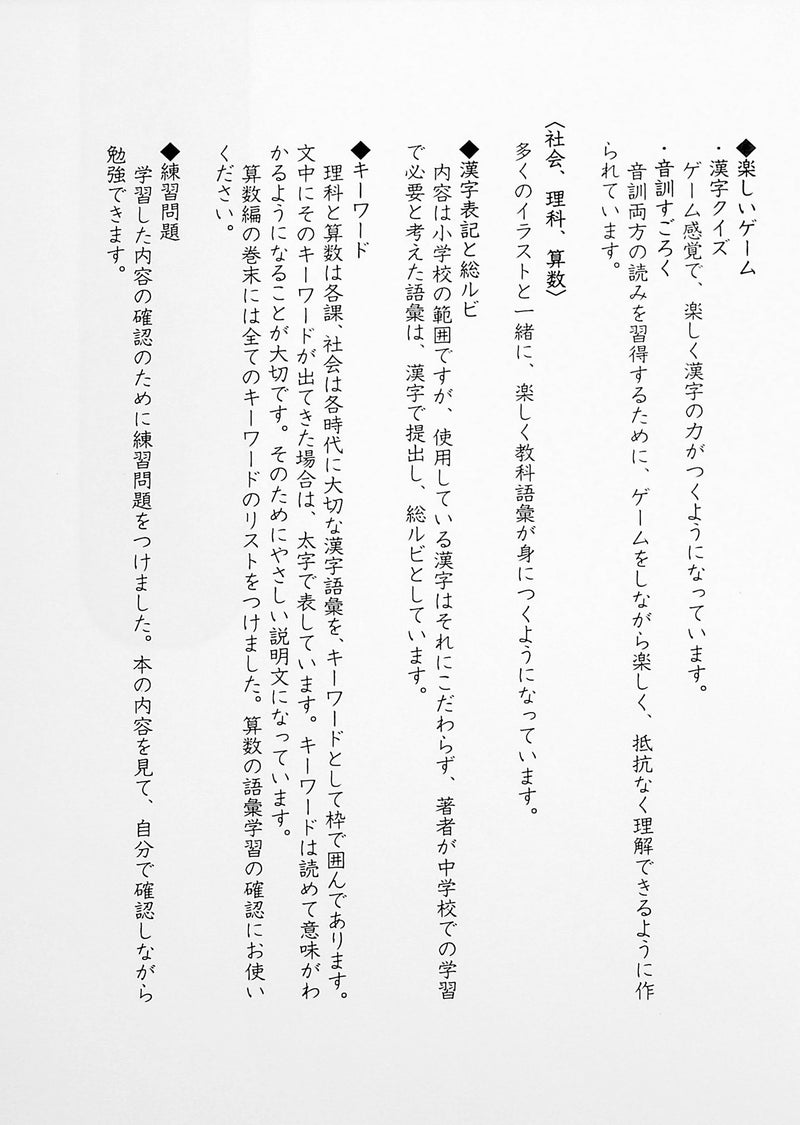 ◆楽しいゲーム
・漢字クイズ
ゲーム感覚で、楽しく漢字の力がつくようになっています。
・音訓すごろく
音訓両方の読みを習得するために、ゲームをしながら楽しく、抵抗なく理解できるように作
られています。
〈社会、理科、算数〉
多くのイラストと一緒に、楽しく教科語彙が身につくようになっています。
◆漢字表記と総ルビ
内容は小学校の範囲ですが、使用している漢字はそれにこだわらず、著者が中学校での学習
で必要と考えた語彙は、漢字で提出し、総ルビとしています。
◆キーワード
理科と算数は各課、社会は各時代に大切な漢字語彙を、キーワードとして枠で囲んであります。
文中にそのキーワードが出てきた場合は、太字で表しています。キーワードは読めて意味がわ
かるようになることが大切です。そのためにやさしい説明文になっています。
算数編の巻末には全てのキーワードのリストをつけました。算数の語彙学習の確認にお使い
ください。
◆練習問題
学習した内容の確認のために練習問題をつけました。本の内容を見て、自分で確認しながら
勉強できます。